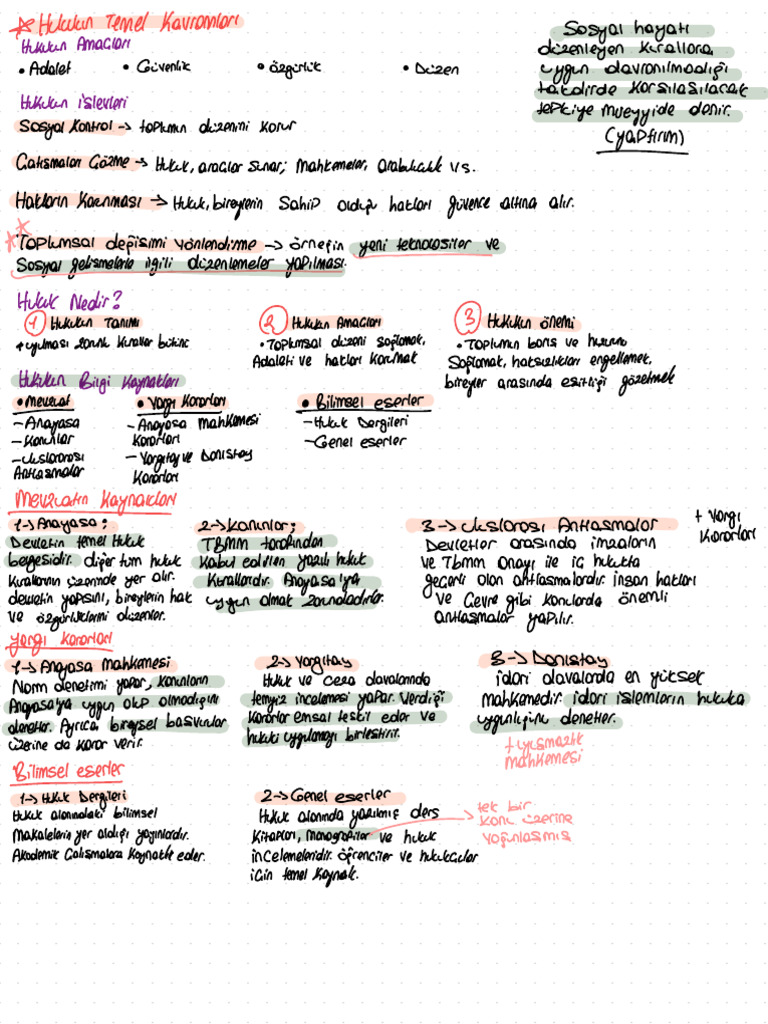 Hukukun Temel Kavramları
Hukukun Amaçları
• Adalet • Güvenlik • özgürlük • Düzen
Sosyal hayatı
düzenleyen kurallara
uygun davranılmadığı
takdirde karşılaşılacak
tepkiye müeyyide denir.
(yaptırım)
Hukukun işlevleri
Sosyal Kontrol → toplumun düzenini korur
Çatışmaları Çözme → Hukuk, araçlar sunar; Mahkemeler, arabuluculuk vs.
Hakların Korunması → Hukuk, bireylerin sahip olduğu hakları güvence altına alır.
Toplumsal değişimi yönlendirme → örneğin yeni teknolojiler ve
Sosyal gelişmelerle ilgili düzenlemeler yapılması.
Hukuk Nedir?
1 Hukukun Tanımı
→ uyulması zorunlu kurallar bütünü
2 Hukukun Amaçları
• Toplumsal düzeni sağlamak,
Adaleti ve hakları korumak
3 Hukukun önemi
• Toplumun barış ve huzurunu
Sağlamak, haksızlıkları engellemek,
bireyler arasında eşitliği gözetmek
Hukukun Bilgi Kaynakları
• Mevzuat
- Anayasa
- Kanunlar
- Uluslararası
Antlaşmalar
• Yargı Kararları
- Anayasa Mahkemesi
Kararları
- Yargıtay ve Danıştay
Kararları
• Bilimsel eserler
- Hukuk Dergileri
- Genel eserler
Mevzuatın Kaynakları
1 → Anayasa;
Devletin temel Hukuk
belgesidir. diğer tüm hukuk
kurallarının üzerinde yer alır.
devletin yapısını, bireylerin hak
ve özgürlüklerini düzenler.
2 → Kanunlar;
TBMM tarafından
Kabul edilen yazılı hukuk
kurallarıdır. Anayasa'ya
uygun olmak zorundadırlar.
3 → Uluslararası Antlaşmalar
Devletler arasında imzalanan
ve Tbmm Onayı ile iç hukukta
geçerli olan antlaşmalardır. insan hakları
ve Çevre gibi konularda önemli
antlaşmalar yapılır.
+ Yargı
Kararları
yargı kararları
1 → Anayasa Mahkemesi
Norm denetimi yapar, kanunların
Anayasa'ya uygun olup olmadığını
denetler. Ayrıca, bireysel başvurular
üzerine de karar verir.
2 → Yargıtay
Hukuk ve ceza davalarında
temyiz incelemesi yapar. Verdiği
Kararlar emsal teşkil eder ve
hukuki uygulamayı birleştirir.
3 → Danıştay
idari davalarda en yüksek
mahkemedir. idari işlemlerin hukuka
uygunluğunu denetler.
+ uyuşmazlık
Mahkemesi
Bilimsel eserler
1 → Hukuk Dergileri
Hukuk alanındaki bilimsel
Makalelerin yer aldığı yayınlardır.
Akademik Çalışmalara Kaynaklık eder.
2 → Genel eserler
Hukuk alanında yazılmış ders
Kitapları, monografiler ve hukuk
incelemeleridir. öğrenciler ve hukukçular
için temel kaynak.
tek bir
konu üzerine
yoğunlaşmış